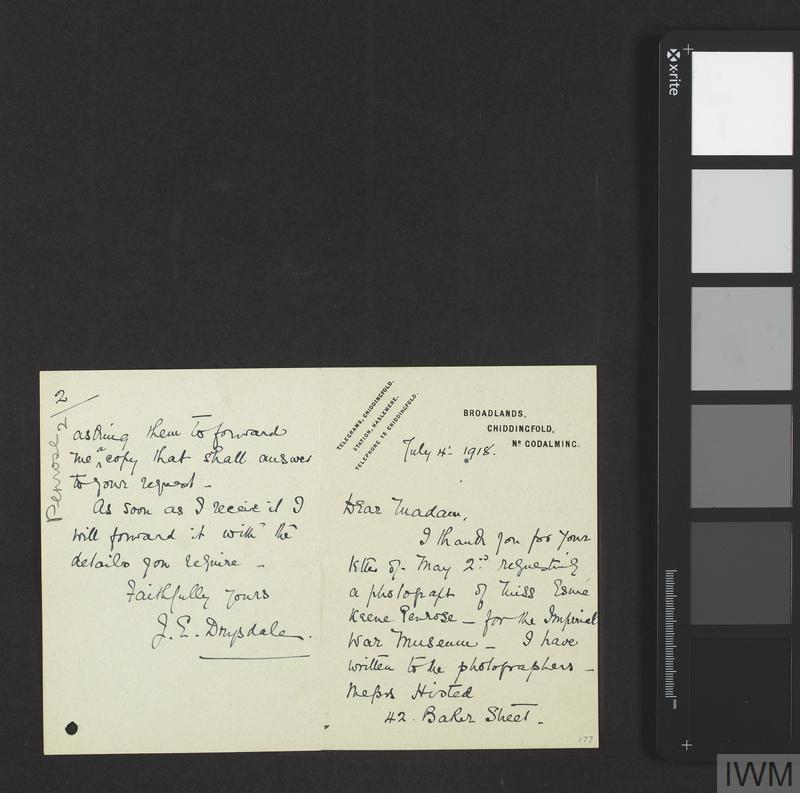 TELEGRAMS, CHIDDINGFOLD.
STATION, HASLEMERE.
TELEPHONE 13 CHIDDINGFOLD.
BROADLANDS,
CHIDDINGFOLD,
Nr GODALMING.
July 4th 1918.
Dear Madam,
I thank you for your
letter of May 2nd requesting
a photograph of Miss Esmé
Keene Penrose – for the Imperial
War Museum – I have
written to the photographers –
Messrs Histed
42. Baker Street –
177
2
Penrose 2
asking them to forward
me a copy that shall answer
to your request –
As soon as I receive it I
will forward it with the
details you require –
Faithfully yours
J. E. Drysdale.
x-rite
mm
IWM